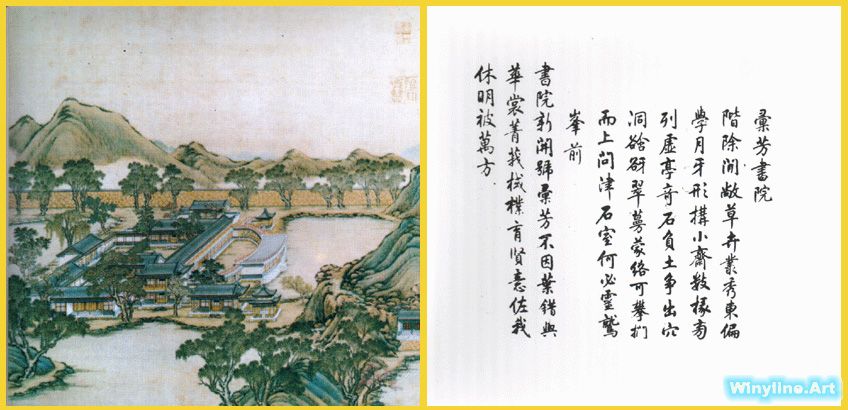 彙芳書院
階除閒敞草卉叢秀東偏
學月牙形構小齋數椽旁
列虛亭奇石負土爭出穴
洞谽谺翠蔓蒙絡可攀捫
而上問津石室何必靈鷲
峯前
書院新開號彙芳不因葉錯與
華裳菁莪棫樸育賢意佐我
休明被萬方
Winyline.Art